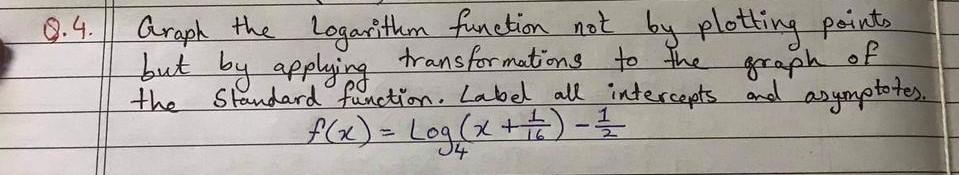 Q.4. Graph the Logarithm function not by plotting points
but by applying transformations to the graph of
the Standard function. Label all intercepts and asymptotes.
f(x) = Log₄(x + 1/16) - 1/2